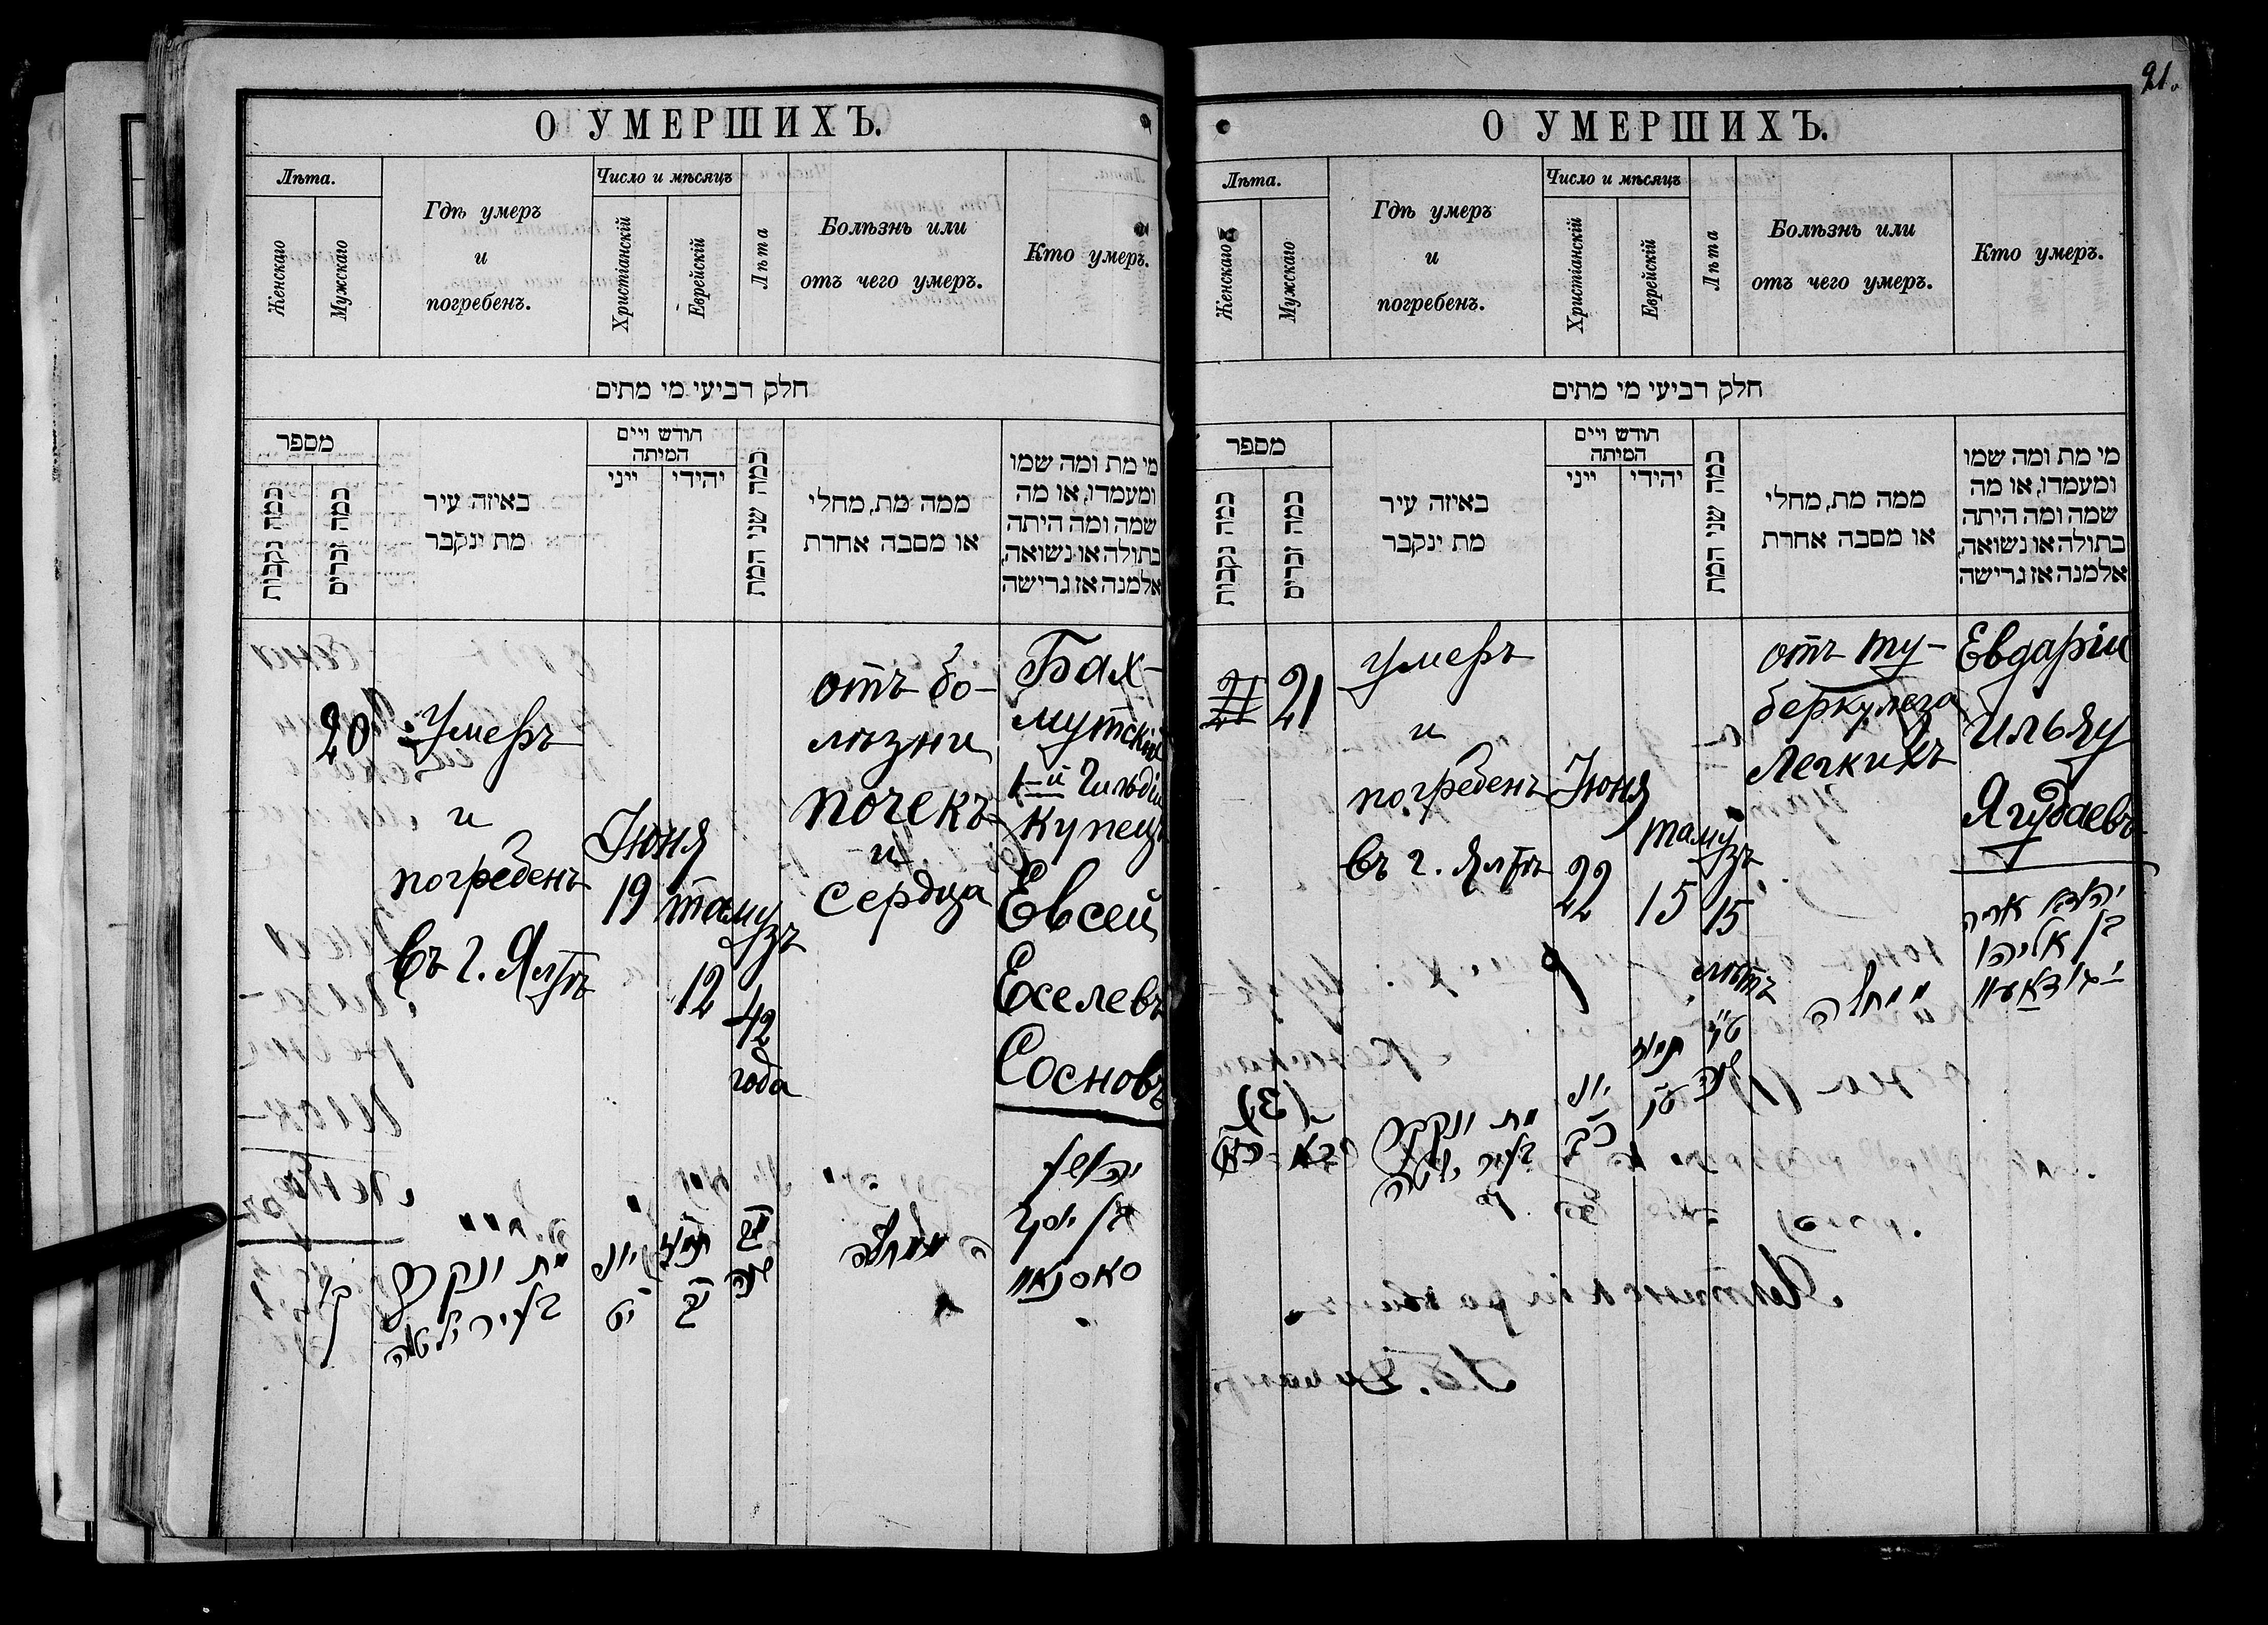 О УМЕРШИХЪ.
Лѣта.
Женскаго
Мужскаго
Гдѣ умеръ
и
погребенъ.
Число и мѣсяцъ
Христіанскій
Еврейскій
Лѣта
Болѣзнь или
отъ чего умеръ.
Кто умеръ.
חלק רביעי מי מתים
מספר
כמה נקבות
כמה זכרים
באיזה עיר
מת ינקבר
חודש ויים
המיתה
ייני
יהידי
כמה שני המת
ממה מת, מחלי
או מסבה אחרת
מי מת ומה שמו
ומעמדו, או מה
שמה ומה היתה
בתולה או נשואה,
אלמנה אז גרישה
20
Умеръ
и
погребенъ
въ г. Ялтѣ
Іюня
19
тамузъ
12
42
года
отъ бо-
лѣзни
почекъ
и
сердца
Бах-
мутскій
1-й Гильдіи
купецъ
Евсей
Еселевъ
Сосновъ
מת ונקבר
בעיר יאלטה
יוני
יט
תמוז
יב
מב
שנה
21.
О УМЕРШИХЪ.
Лѣта.
Женскаго
Мужскаго
Гдѣ умеръ
и
погребенъ.
Число и мѣсяцъ
Христіанскій
Еврейскій
Лѣта
Болѣзнь или
отъ чего умеръ.
Кто умеръ.
חלק רביעי מי מתים
מספר
כמה נקבות
כמה זכרים
באיזה עיר
מת ינקבר
חודש ויים
המיתה
ייני
יהידי
כמה שני המת
ממה מת, מחלי
או מסבה אחרת
מי מת ומה שמו
ומעמדו, או מה
שמה ומה היתה
בתולה או נשואה,
אלמנה אז גרישה
21
21
умеръ
и
погребенъ
въ г. Ялтѣ
Іюня
22
тамузъ
15
15
лѣтъ
отъ ту-
беркулеза
легкихъ
Евдарій
Ильяу
Ягудаевъ
בן אליהו
מת ונקבר
בעיר יאלטה
יוני
כב
תמוז
טו
שנה